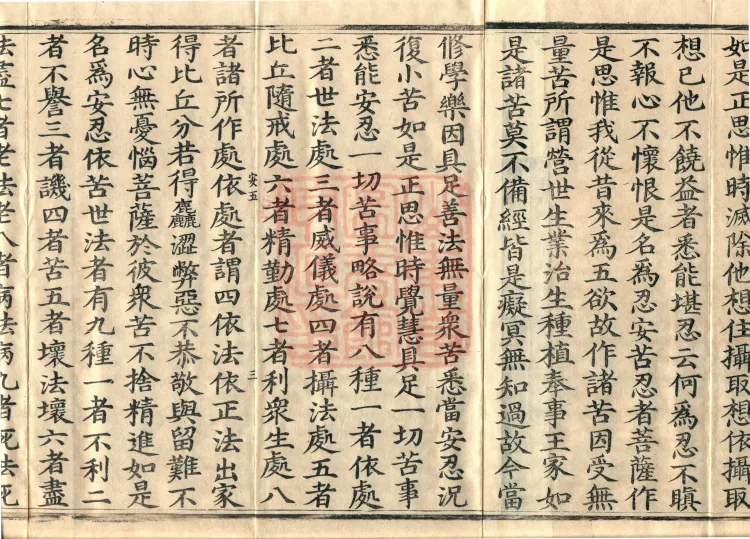 如是正思惟時滅除他想住攝取想依攝取
想已他不饒益者悉能堪忍云何為忍不瞋
不報心不懷恨是名為忍安苦忍者菩薩作
是思惟我從昔來為五欲故作諸苦因受無
量苦所謂營世生業治生種植奉事王家如
是諸苦莫不備經皆是癡冥無知過故今當
修學樂因具足善法無量衆苦悉當安忍況
復小苦如是正思惟時覺慧具足一切苦事
悉能安忍一切苦事略說有八種一者依處
二者世法處三者威儀處四者攝法處五者
比丘隨戒處六者精勤處七者利衆生處八
安五
三
者諸所作處依處者謂四依法依正法出家
得比丘分若得麤澀弊惡不恭敬與留難不
時心無憂惱菩薩於彼衆苦不捨精進如是
名爲安忍依苦世法者有九種一者不利二
者不譽三者譏四者苦五者壞法壞六者盡
法盡七者老法老八者病法病九者死法死